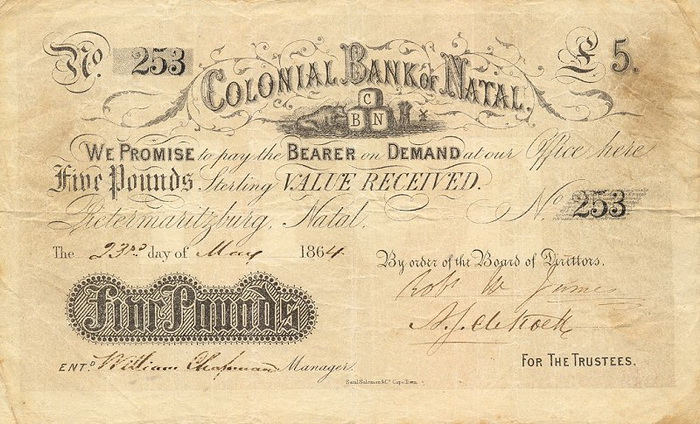 No. 253
£ 5.
COLONIAL BANK OF NATAL.
C
B N
WE PROMISE to pay the BEARER on DEMAND at our Office here
Five Pounds Sterling VALUE RECEIVED.
Pietermaritzburg, Natal.
No. 253
The 23rd day of May 1864
By order of the Board of Directors.
Robt W James
A.J. de Kock
Five Pounds
ENTD. William Chapman Manager.
FOR THE TRUSTEES.
Saul Solomon & Co. Cape Town